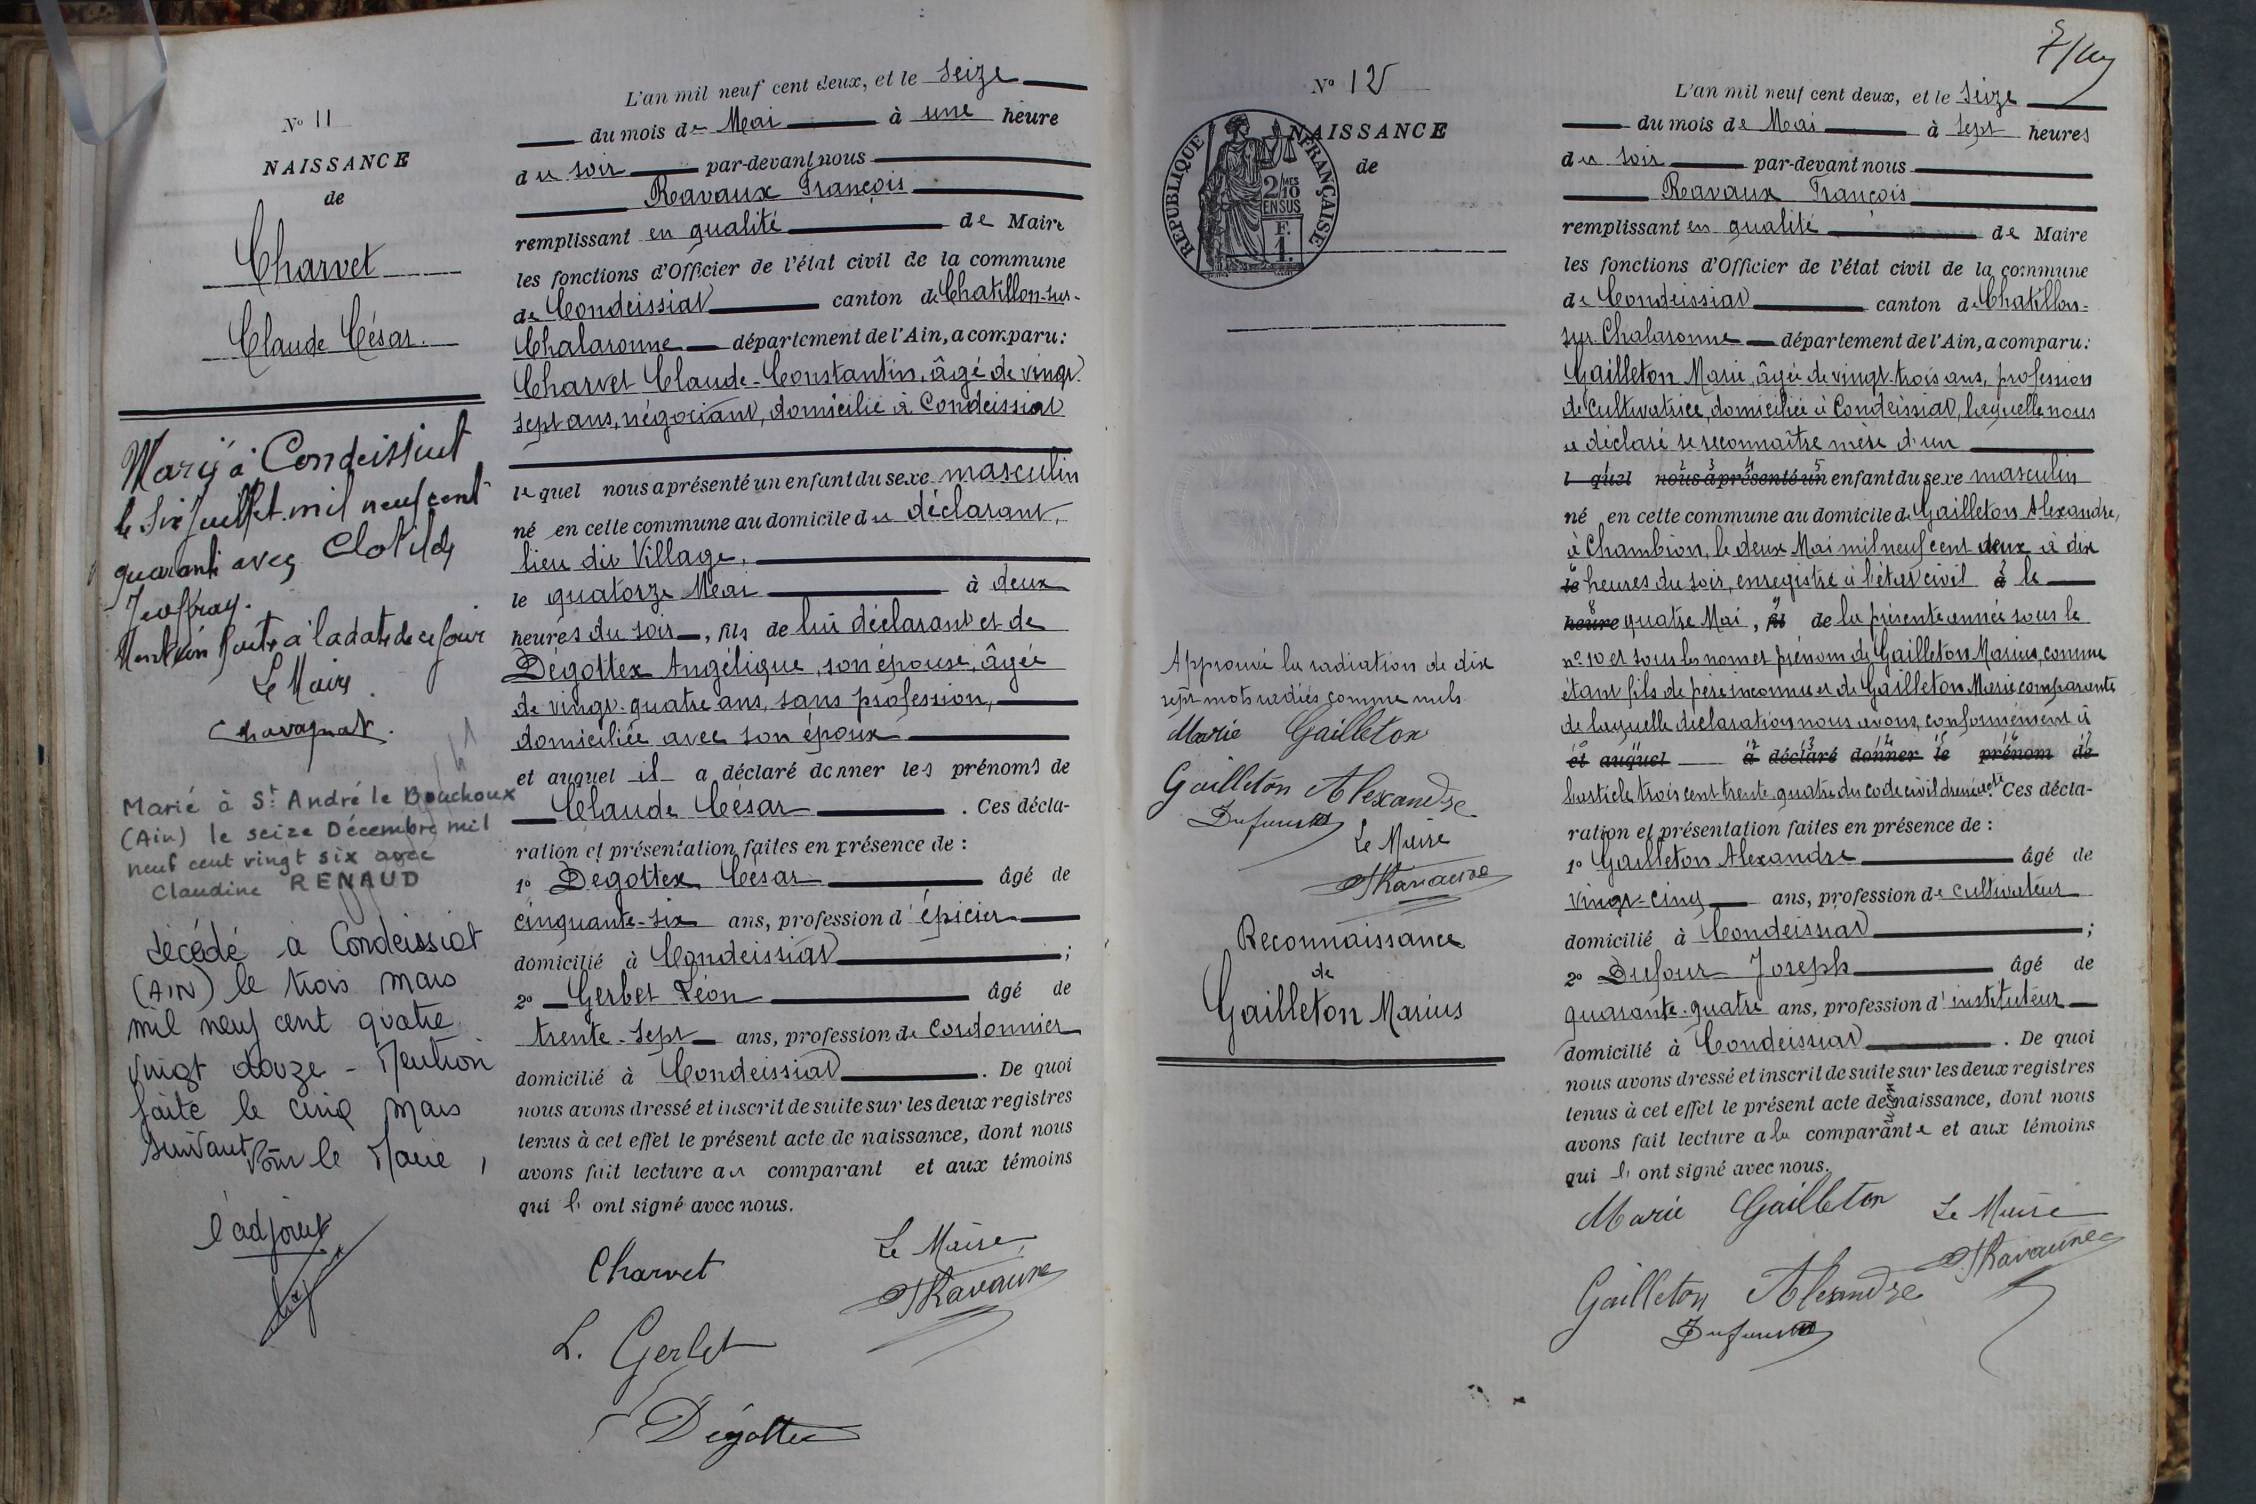 N° 11
NAISSANCE
de
Charvet
Claude César.
Marié à Condeissiat
le six Juillet mil neuf cent
quarante avec Clotilde
Jeoffray.
Mention faite à la date de ce jour
Le Maire
Chavagnat.
Marié à St. André le Bouchoux
(Ain) le seize Décembre mil
neuf cent vingt six avec
Claudine RENAUD
décédé à Condeissiat
(AIN) le trois mars
mil neuf cent quatre
vingt douze - Mention
faite le cinq mars
suivant Pour le Maire,
l'adjoint
L'an mil neuf cent deux, et le seize
du mois de Mai à une heure
du soir par-devant nous
Ravaux François
remplissant en qualité de Maire
les fonctions d'Officier de l'état civil de la commune
de Condeissiat canton de Chatillon-sur-
Chalaronne département de l'Ain, a comparu:
Charvet Claude-Constantin, âgé de vingt
sept ans, négociant, domicilié à Condeissiat
lequel nous a présenté un enfant du sexe masculin
né en cette commune au domicile du déclarant,
lieu dit Village,
le quatorze Mai à deux
heures du soir, fils de lui déclarant et de
Dégottex Angélique, son épouse, âgée
de vingt-quatre ans, sans profession,
domiciliée avec son époux
et auquel il a déclaré donner les prénoms de
Claude César. Ces décla-
ration et présentation faites en présence de :
1° Dégottex César âgé de
cinquante-six ans, profession d'épicier
domicilié à Condeissiat ;
2° Gerbet Léon âgé de
trente-sept ans, profession de cordonnier
domicilié à Condeissiat. De quoi
nous avons dressé et inscrit de suite sur les deux registres
tenus à cet effet le présent acte de naissance, dont nous
avons fait lecture au comparant et aux témoins
qui l' ont signé avec nous.
Charvet Le Maire,
FRavaux
L. Gerbet
Dégottex
N° 12
NAISSANCE
de
RÉPUBLIQUE FRANÇAISE
2/10 MES
EN SUS
F.
1.
Approuvé la radiation de dix
sept mots radiés comme nuls.
Marie Gailleton
Gailleton Alexandre
Dufour
Le Maire
FRavaux
Reconnaissance
de
Gailleton Marius
L'an mil neuf cent deux, et le seize
du mois de Mai à sept heures
du soir par-devant nous
Ravaux François
remplissant en qualité de Maire
les fonctions d'Officier de l'état civil de la commune
de Condeissiat canton de Chatillon-
sur-Chalaronne département de l'Ain, a comparu:
Gailleton Marie, âgée de vingt-trois ans, profession
de cultivatrice, domiciliée à Condeissiat, laquelle nous
a déclaré se reconnaître mère d'un
l quel nous a présenté un enfant du sexe masculin
né en cette commune au domicile de Gailleton Alexandre,
à Chambion, le deux Mai mil neuf cent deux à dix
le heures du soir, enregistré à l'état civil à le
heure quatre Mai, fil de la présente année sous le
n° 10 et sous les nom et prénom de Gailleton Marius, comme
étant fils de père inconnu et de Gailleton Marie comparante
de laquelle déclaration nous avons, conformément à
et auquel a déclaré donner le prénom de
l'article trois cent trente-quatre du code civil dressé acte. Ces décla-
ration et présentation faites en présence de :
1° Gailleton Alexandre âgé de
vingt-cinq ans, profession de cultivateur
domicilié à Condeissiat ;
2° Dufour Joseph âgé de
quarante-quatre ans, profession d'instituteur
domicilié à Condeissiat. De quoi
nous avons dressé et inscrit de suite sur les deux registres
tenus à cet effet le présent acte de naissance, dont nous
avons fait lecture à la comparante et aux témoins
qui l' ont signé avec nous.
Marie Gailleton Le Maire
FRavaux
Gailleton Alexandre
Dufour